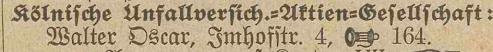 Kölnische Unfallversich.=Aktien=Gesellschaft:
Walter Oscar, Imhofstr. 4, 164.